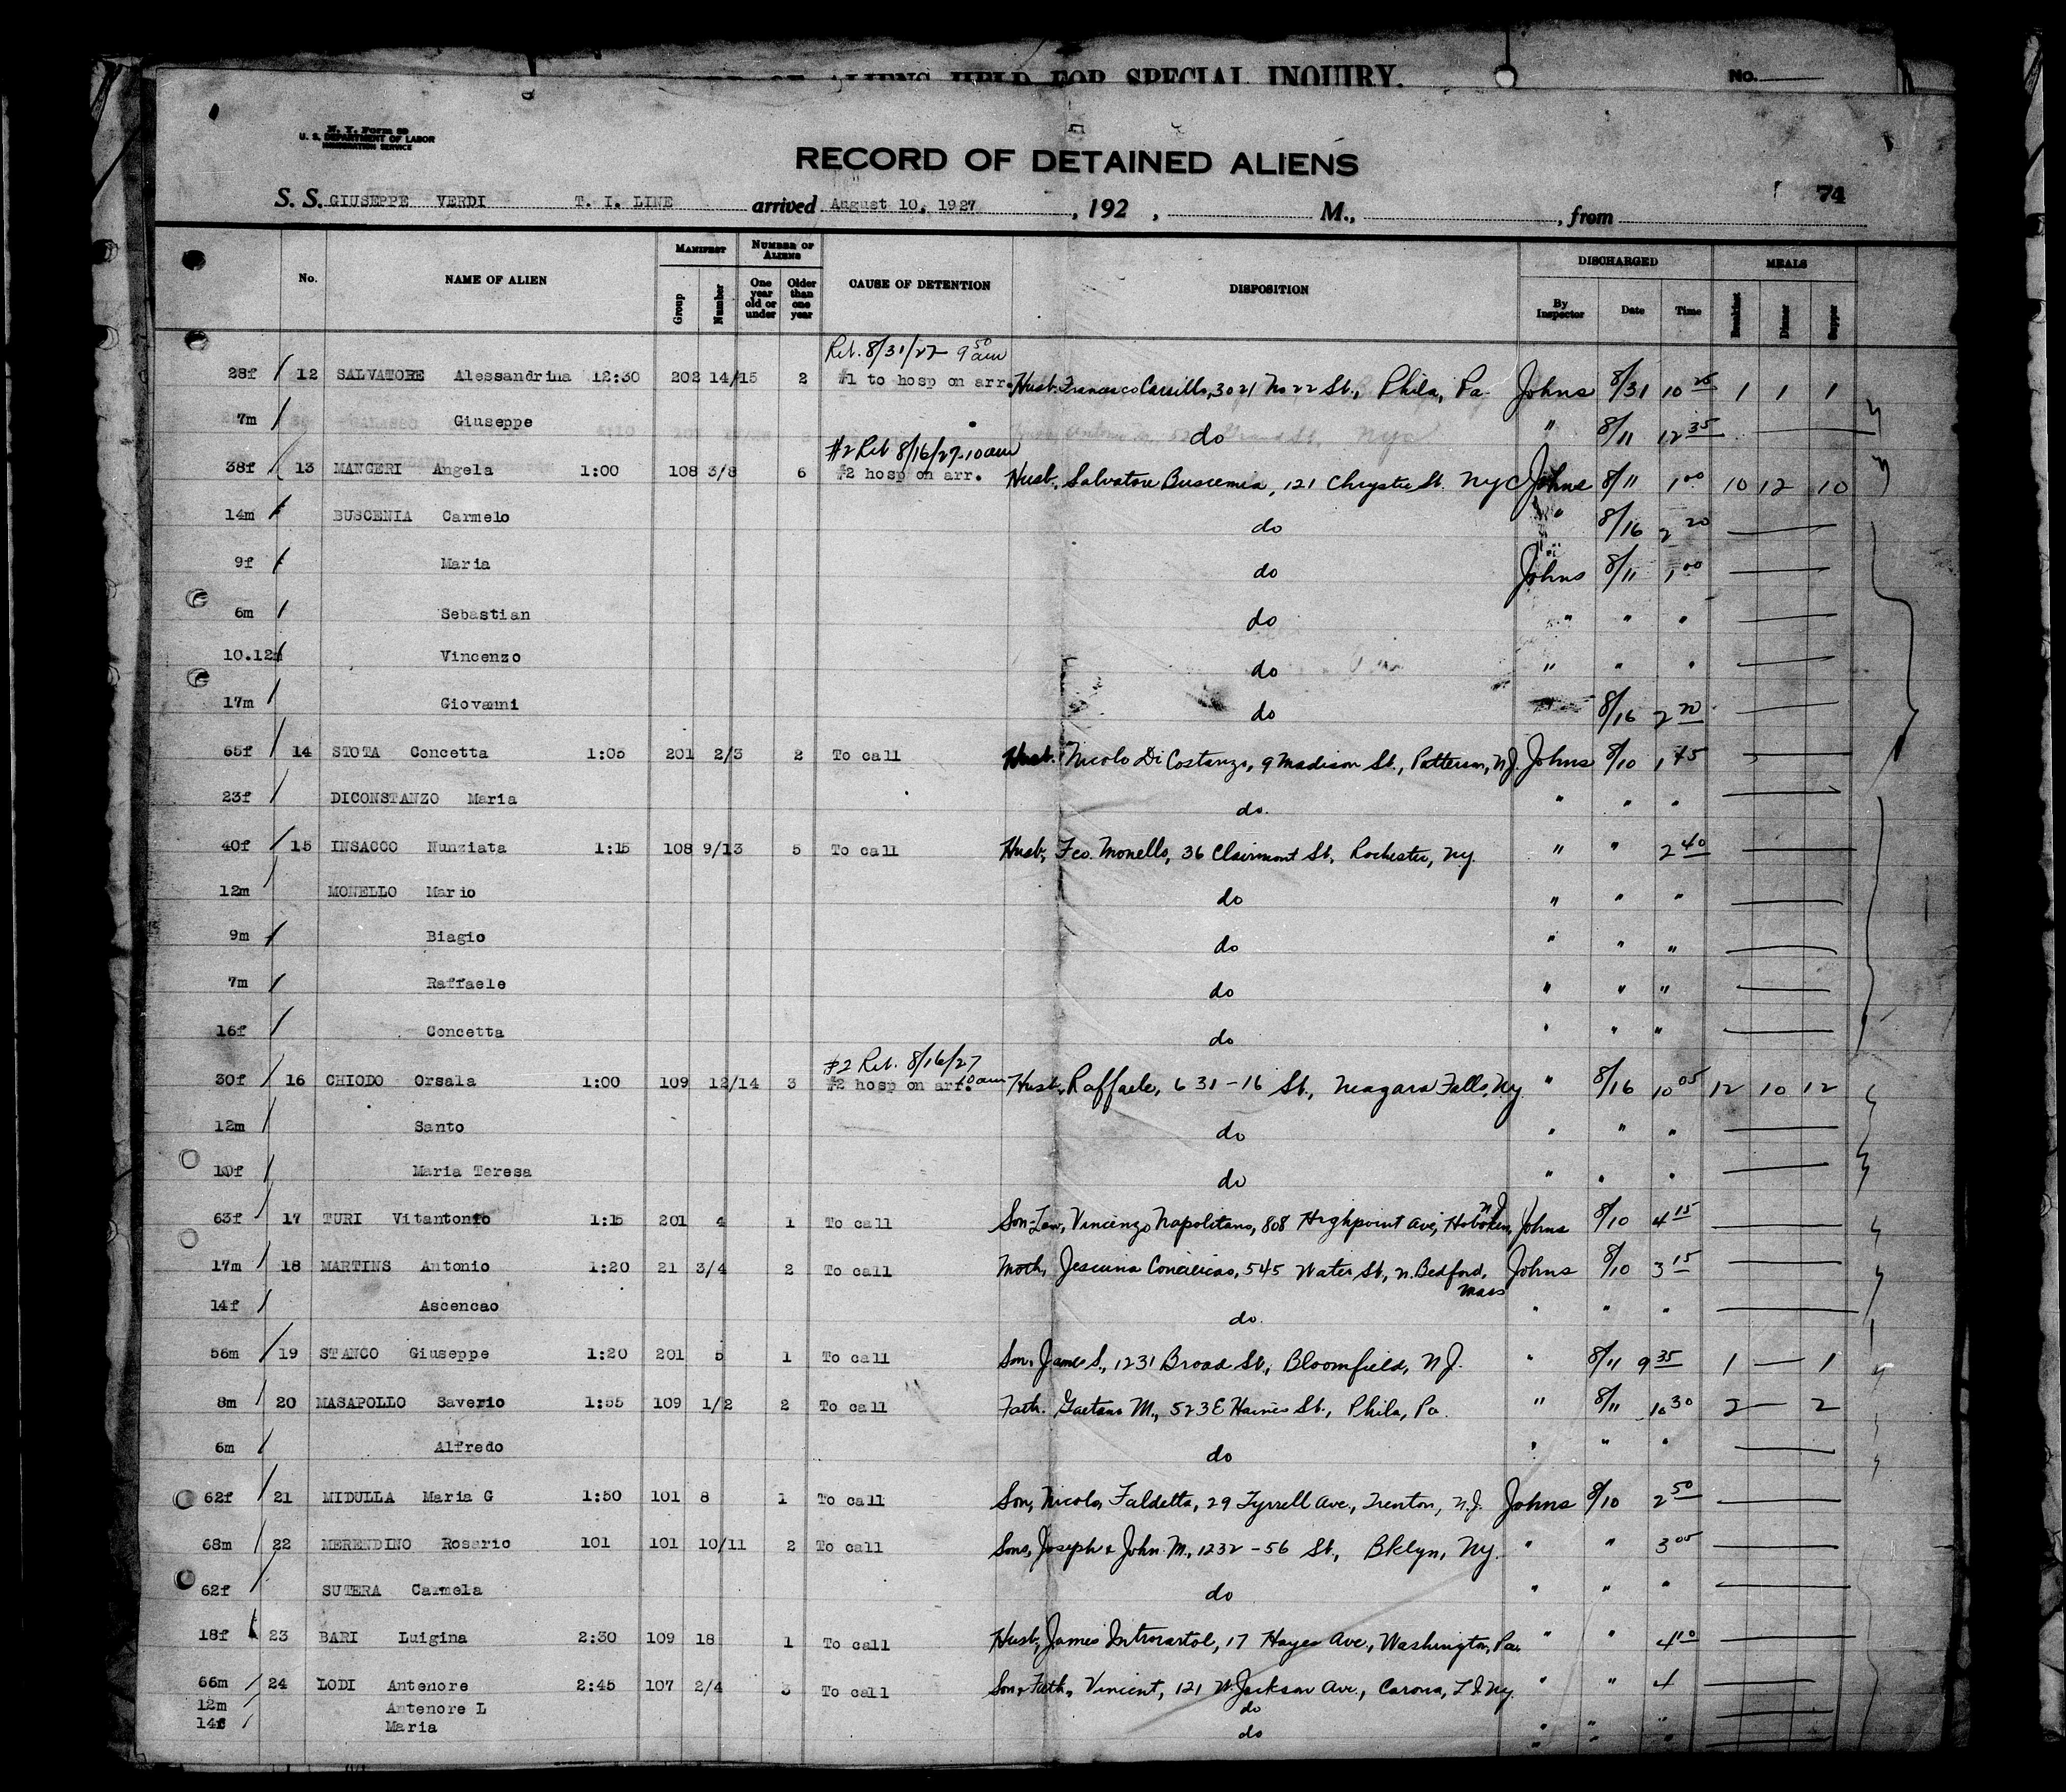 ALIENS HELD FOR SPECIAL INQUIRY. No.
N. Y. Form
U. S. DEPARTMENT OF LABOR
IMMIGRATION SERVICE
RECORD OF DETAINED ALIENS
74
S. S. GIUSEPPE VERDI T. I. LINE arrived August 10, 1927, 192 , M., , from
No. NAME OF ALIEN MANIFEST Group Number NUMBER OF ALIENS One year old or under Older than one year CAUSE OF DETENTION DISPOSITION DISCHARGED By Inspector Date Time MEALS Breakfast Dinner Supper
Ret. 8/31/27 9 50 am
28f / 12 SALVATORE Alessandrina 12:30 202 14/15 2 #1 to hosp on arr. Husb. Francesco Carsillo, 3021 No 22 St., Phila, Pa. Johns 8/31 10 25 1 1 1
7m / Giuseppe do " 8/11 12 35
#2 Ret 8/16/27-10am
38f / 13 MANGERI Angela 1:00 108 3/8 6 #2 hosp on arr. Husb. Salvatore Buscemia, 121 Chrystie St. NYC Johns 8/11 1 00 10 12 10
14m / BUSCENIA Carmelo do " 8/16 2 20
9f / Maria do Johns 8/11 1 00
6m / Sebastian do " " "
10.12m Vincenzo do " " "
17m / Giovanni do 8/16 2 20
65f / 14 STOTA Concetta 1:05 201 2/3 2 To call Husb. Nicolo Di Costanzo, 9 Madison St., Patterson, N.J. Johns 8/10 1 45
23f / DICONSTANZO Maria do. " " "
40f / 15 INSACCO Nunziata 1:15 108 9/13 5 To call Husb, Fco. Monello, 36 Clairmont St, Rochester, Ny. " " 2 40
12m / MONELLO Mario do " " "
9m / Biagio do " " "
7m / Raffaele do " " "
16f / Concetta do " " "
#2 Ret. 8/16/27
30f / 16 CHIODO Orsala 1:00 109 12/14 3 #2 hosp on arr. 10am Husb, Raffaele, 631-16 St., Niagara Falls, Ny " 8/16 10 05 12 10 12
12m / Santo do " " "
10f / Maria Teresa do " " "
63f / 17 TURI Vitantonio 1:15 201 4 1 To call Son-Law, Vincenzo Napolitano, 808 Highpoint Ave, Hoboken, NJ Johns 8/10 4 15
17m / 18 MARTINS Antonio 1:20 21 3/4 2 To call Moth, 545 Water St, N. Bedford, Mass Johns 8/10 3 15
14f / Ascencao do. " " "
56m / 19 STANCO Giuseppe 1:20 201 5 1 To call Son, James S., 1231 Broad St., Bloomfield, N J. " 8/11 9 35 1 — 1
8m / 20 MASAPOLLO Saverio 1:55 109 1/2 2 To call Fath. Gaetano M., 523 E Haines St., Phila, Pa. " 8/11 10 30 2 — 2
6m / Alfredo do " " "
62f / 21 MIDULLA Maria G 1:50 101 8 1 To call Son, Nicola Faldetta, 29 Tyrrell Ave., Trenton, N.J. Johns 8/10 2 50
68m / 22 MERENDINO Rosario 101 101 10/11 2 To call Sons, Joseph & John M., 1232-56 St., Bklyn, Ny. " " 3 05
62f / SUTERA Carmela do " " "
18f / 23 BARI Luigina 2:30 109 18 1 To call Husb, James, 17 Hayes Ave., Washington, Pa. " " 4 10
66m / 24 LODI Antenore 2:45 107 2/4 3 To call Son, Fath, Vincent, 121 W. Jackson Ave., Corona, L I Ny. " " 4
12m / Antenore L do
14f / Maria do " " "